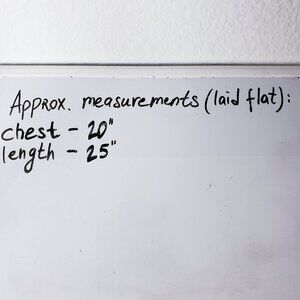 Approx. measurements (laid flat):
chest - 20"
length - 25"